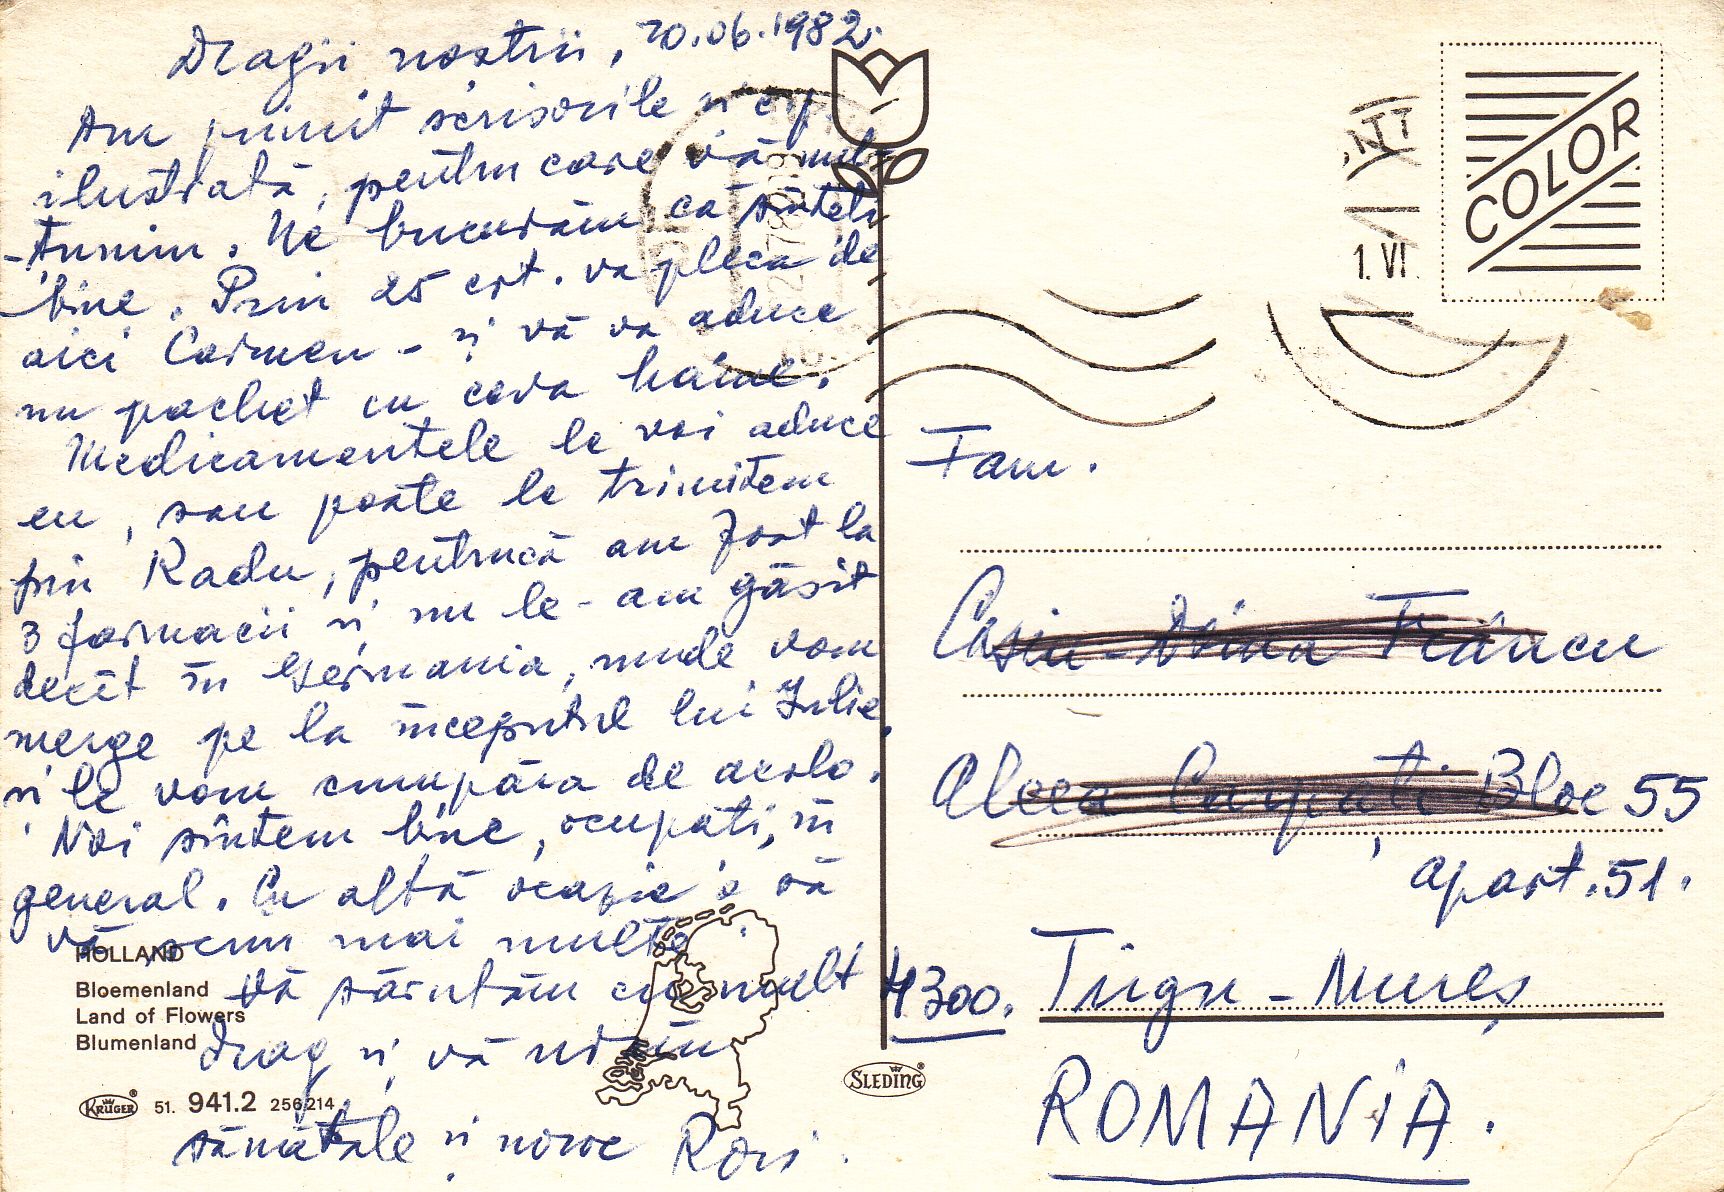 Dragii noștrii, 20.06.1982.
Am primit scrisorile și
ilustrată, pentru care vă mul-
-țumim. Ne bucurăm că sînteți
bine. Prin 25 crt. va pleca de
aici Carmen - și vă va aduce
un pachet cu ceva haine.
Medicamentele le voi aduce
eu, sau poate le trimitem
prin Radu, pentrucă am fost la
3 farmacii și nu le-am găsit
decît în Germania, unde vom
merge pe la începutul lui Iulie,
și le vom cumpăra de acolo.
Noi sîntem bine, ocupați, în
general. Cu altă ocazie o să
vă scriu mai multe
Vă sărutăm cu mult
drag și vă urăm
sănătate și noroc Rori.
HOLLAND
Bloemenland
Land of Flowers
Blumenland
KRÜGER 51. 941.2 256214
SLEDING
COLOR
1. VI
Fam.
Crîncu
Aleea Carpați Bloc 55
apart. 51.
4300. Tîrgu-Mureș
ROMANIA.